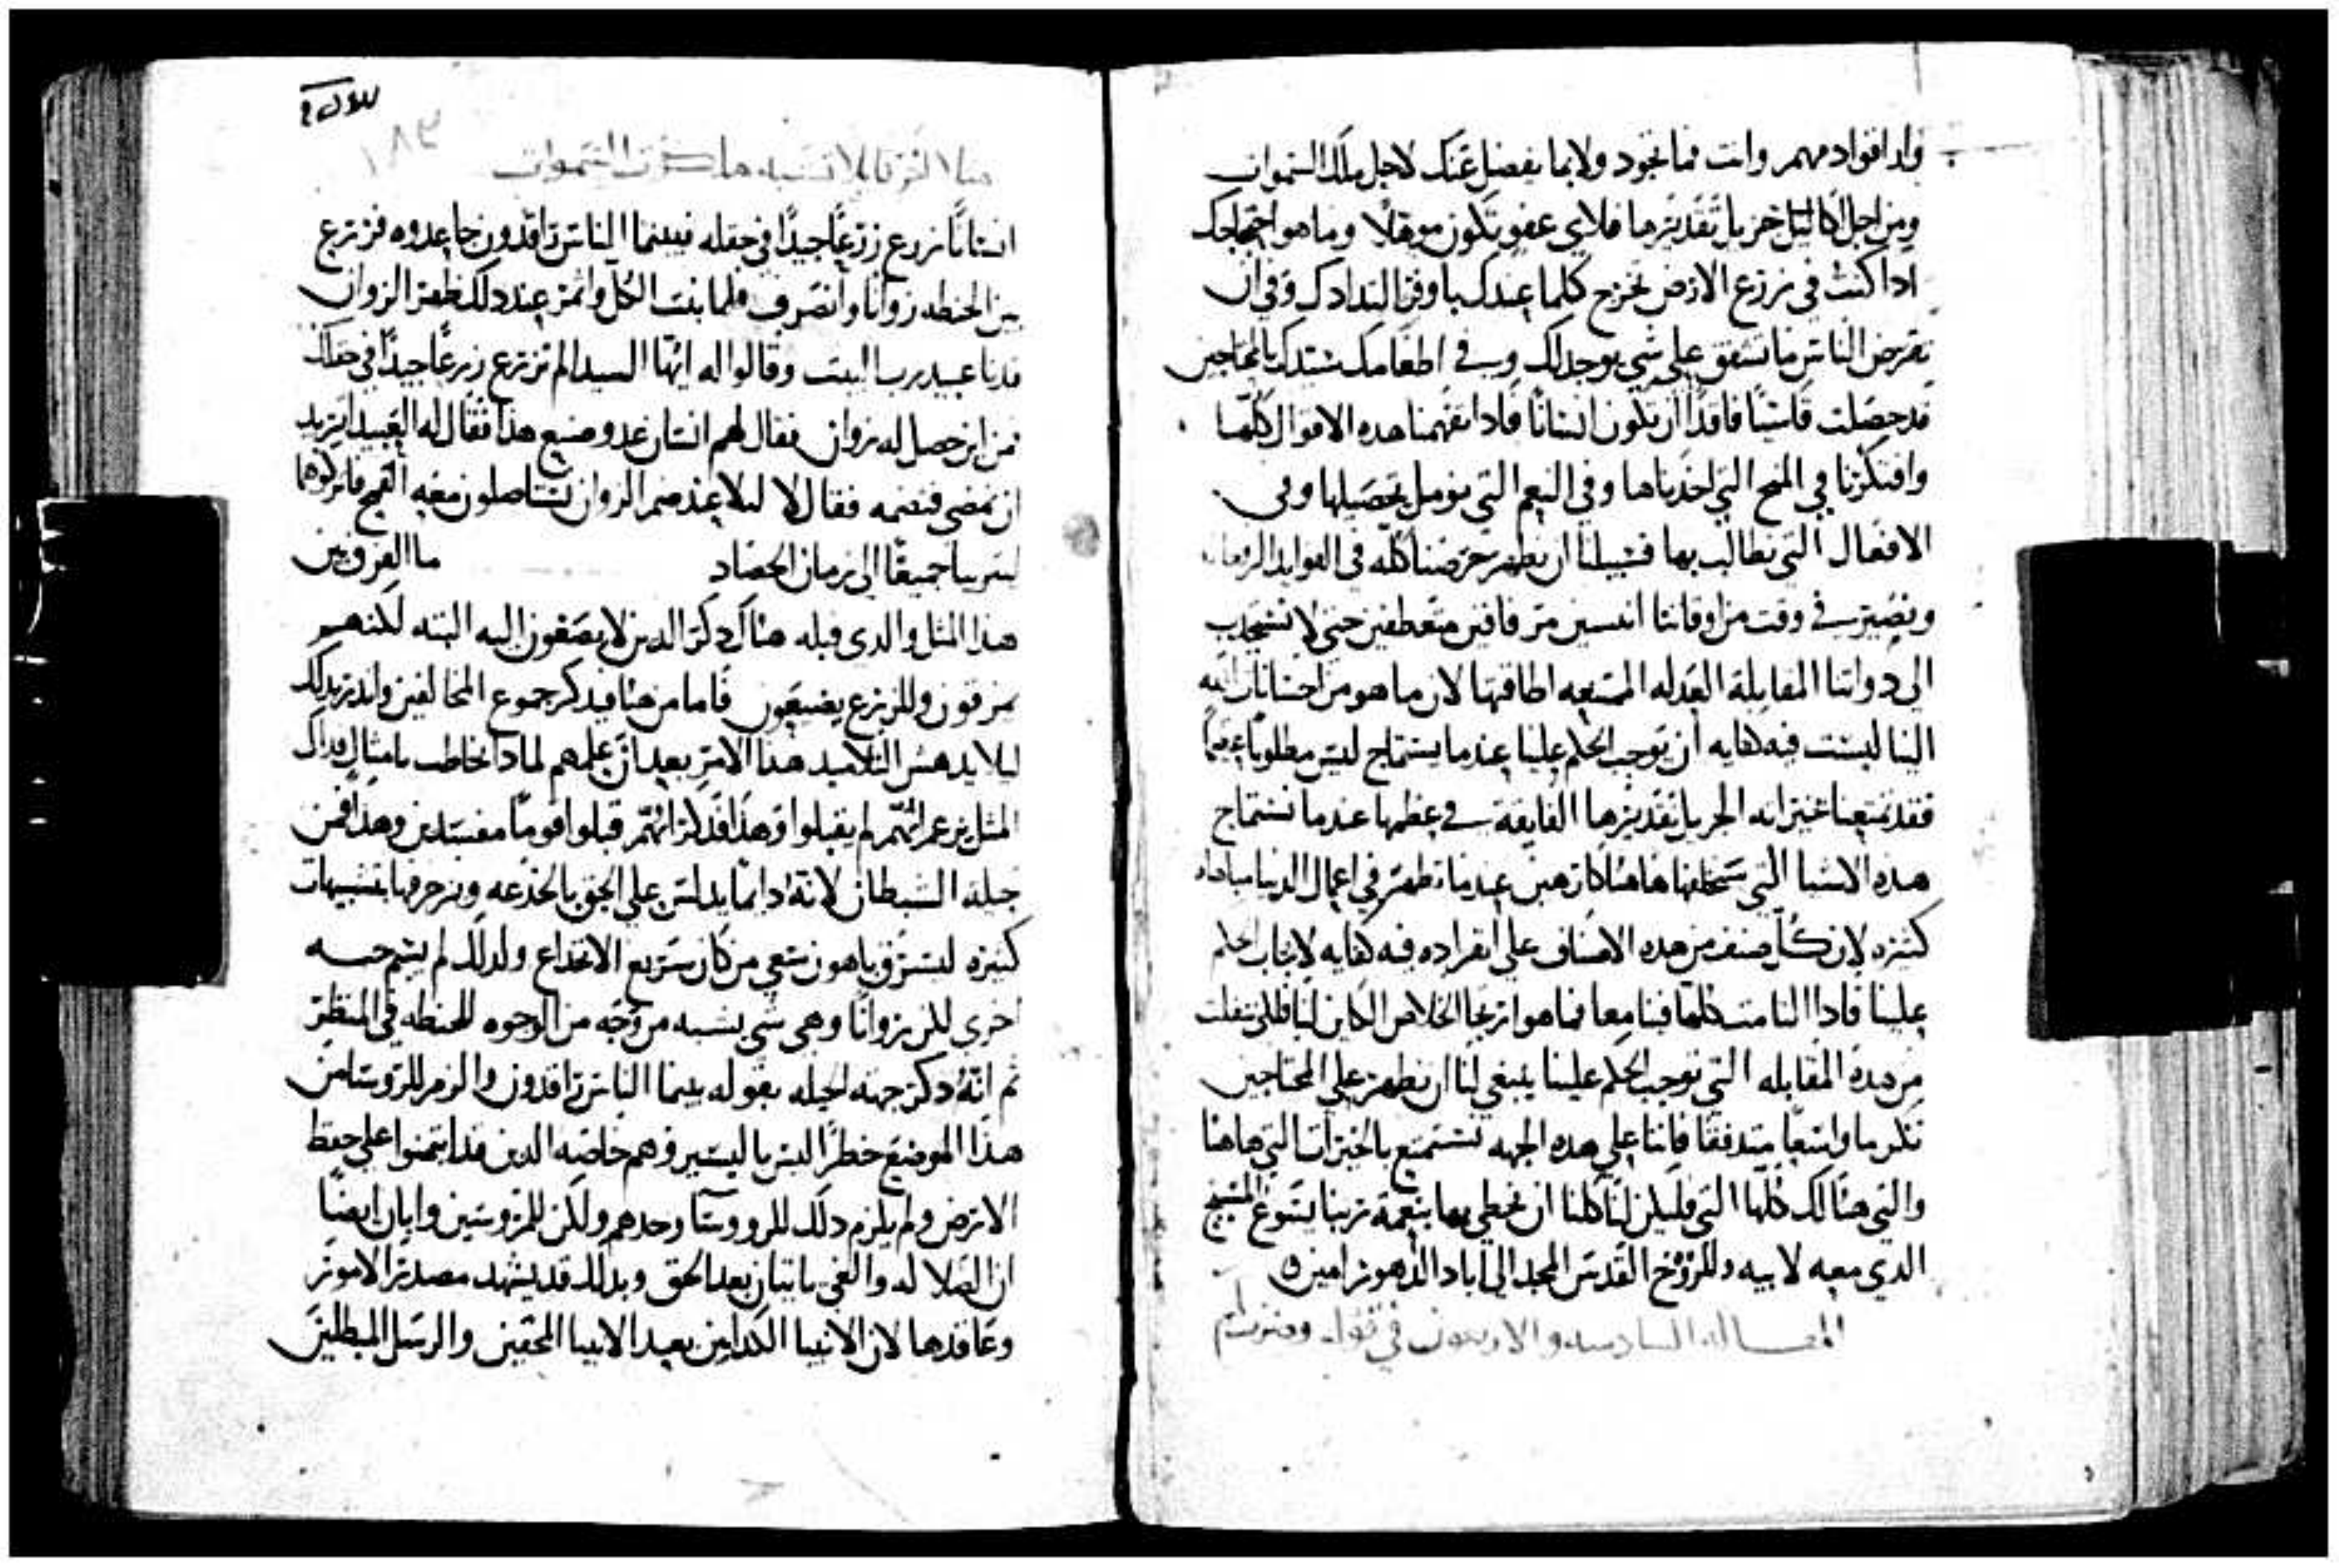 واذا قوادمهم وانت فما تجود ولا بما يفضل عنك لاجل ملك السموات
ومن اجل اكاليل خزيل تقديرها فلاي عفو تكون موهلا وما هو احتجاجك
اذا كنت في زرع الارض تخرج كلما عندك باوفر البدادك وفي ان
تقرض الناس ما تشفق على شي يوجد لك وفي اطعامك سيدك بالمحتاجين
قد حصلت قاسيًا فاقدًا ان تكون انسانًا فاذا تفهمنا هذه الاقوال كلها
وافتكرنا في المنح التي اخذناها وفي النعم التي نومل تحصيلها وفي
الافعال التي نطالب بها فسبيلنا ان نظهر حرصنا كله في الفوايد
ونصير في وقت من اوقاتنا انسين مترفاقين متعطفين حتى لا نستجذب
الى ذواتنا المقابلة العدله الممتنعه اطاقتها لان ما هو من احسانات الله
الينا ليست فيه كفايه ان توجب الحكم علينا عندما يستماح ليس مطلوبًا
فقد تمتعنا بخيراته الجزيل تقديرها الفايقة في عظمها عندما نستماح
هذه الاشيا التي سنخلفها هاهنا كارهين عندما نظهر في اعمال الدنيا مباهاه
كثيره لان كل صنف من هذه الاصناف على انفراده فيه كفايه لايجاب الحكم
علينا فاذا التامت كلها فينا معا فما هو ارتجا الخلاص الكاين لنا فلكي نفلت
من هذه المقابله التي توجب الحكم علينا ينبغي لنا ان نظهر على المحتاجين
تكرما واسعًا متدفقا فاننا على هذه الجهه نستمتع بالخيرات التي هاهنا
والتي هنالك كلها التي فليكن لنا كلنا ان نحظى بها بنعمة ربنا يسوع المسيح
الذي معه لابيه وللروح القدس المجد الى اباد الدهور امين
المقاله السادسه والاربعون في قوله وضرب لهم
١٨٣
مثلا اخر قايلا تشبه ملكوت السموات
انسانًا زرع زرعًا جيدًا في حقله فبينما الناس راقدون جا عدوه فزرع
بين الحنطه زوانًا وانصرف فلما نبت الكل واثمر عند ذلك ظهر الزوان
فدنا عبيد رب البيت وقالوا له ايها السيد الم تزرع زرعًا جيدًا في حقلك
فمن اين حصل له زوان فقال لهم انسان عدو صنع هذا فقال له العبيد اتريد
ان نمضي فنضمه فقال لا ليلا عند ضمكم الزوان تستاصلون معه القمح فاتركوهما
ليتربيا جميعًا الى زمان الحصاد ما الفرق بين
هذا المثل والذي قبله هناك ذكر الذين لا يصغون اليه البته لكنهم
يمرقون وللزرع يضيعون فاما من هنا فيذكر جموع المخالفين
ليلا يدهش التلاميذ هذا الامر بعد ان علمهم لماذا يخاطب بامثال فذاك
المثل يزعم انهم لم يقبلوا وهذا فذكر انهم قبلوا قومًا مفسدين وهذا فمن
حيلة الشيطان لانه دايمًا يدلس على الحق بالخدعه ويزخرفها بتشبيهات
كثيره ليسرق باهون سعي من كان سريع الانخداع ولذلك لم يسم
اخرى للن زوانًا وهي شي يشبه من وجه من الوجوه للحنطه في المنظر
ثم انه ذكر جهة الحيله بقوله بينما الناس راقدون والزم للروسا من
هذا الموضع خطرًا ليس باليسير وهم خاصه الذين قد ايتمنوا على حفظ
الارض ولم يلزم ذلك للروسا وحدهم ولكن للمروسين وابان ايضًا
ان الضلاله والغي ياتيان بعد الحق وبذلك قد يشهد مصدر الامور
وعاقدها لان الانبيا الكذابين بعد الانبيا المحقين والرسل المبطلين